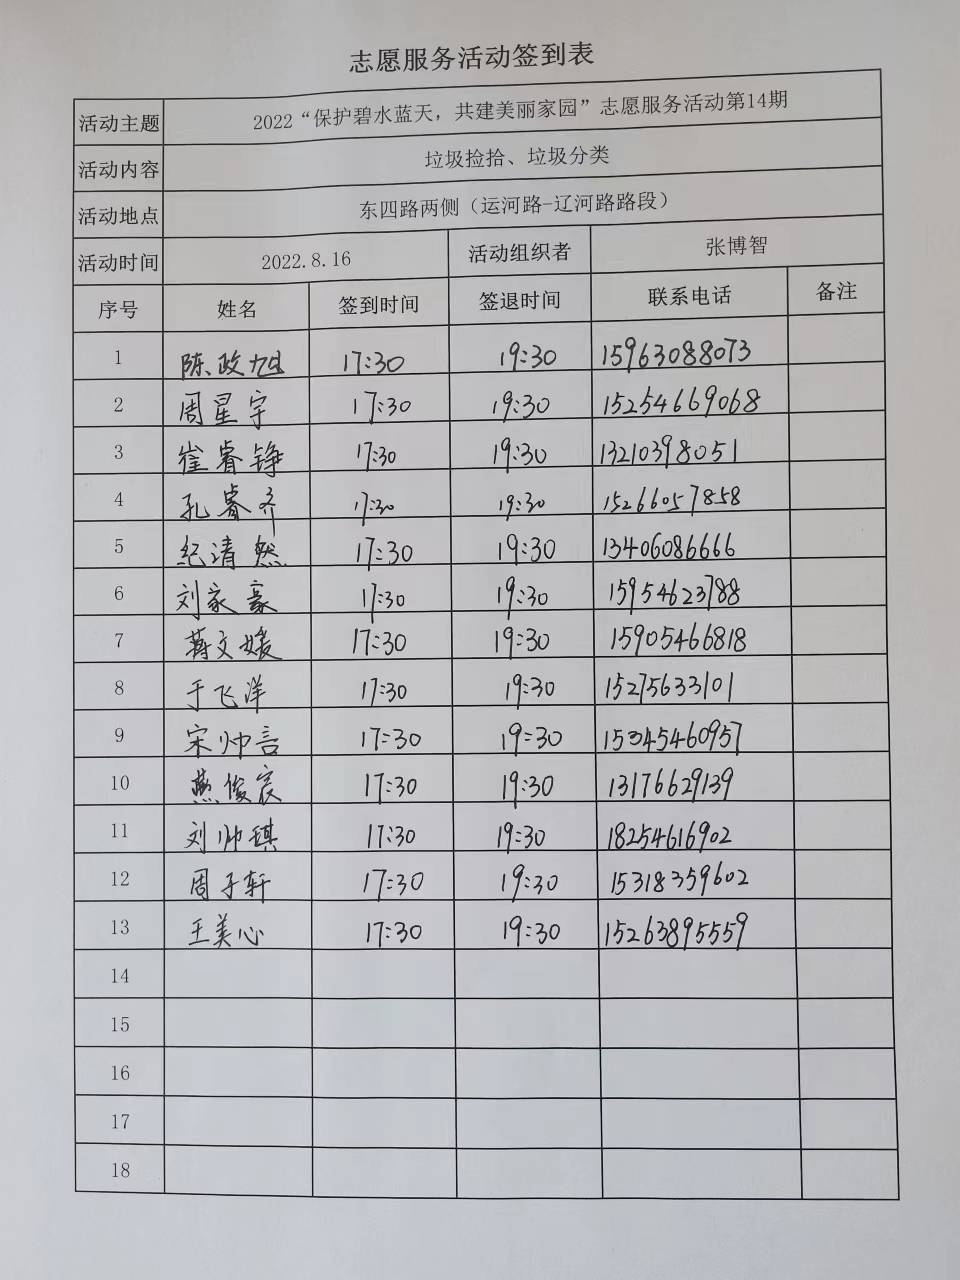 志愿服务活动签到表
活动主题 2022“保护碧水蓝天，共建美丽家园”志愿服务活动第14期
活动内容 垃圾捡拾、垃圾分类
活动地点 东四路两侧（运河路-辽河路路段）
活动时间 2022.8.16 活动组织者 张博智
序号 姓名 签到时间 签退时间 联系电话 备注
1 陈政旭 17:30 19:30 15963088073
2 周星宇 17:30 19:30 15254669068
3 崔睿铮 17:30 19:30 13210398051
4 孔睿齐 17:30 19:30 15266057858
5 纪清然 17:30 19:30 13406086666
6 刘家豪 17:30 19:30 15954623788
7 蒋文媛 17:30 19:30 15905466818
8 于飞洋 17:30 19:30 15275633101
9 宋帅言 17:30 19:30 15345460957
10 燕俊宸 17:30 19:30 13176629139
11 刘帅琪 17:30 19:30 18254616902
12 周子轩 17:30 19:30 15318359602
13 王美心 17:30 19:30 15263895559
14
15
16
17
18